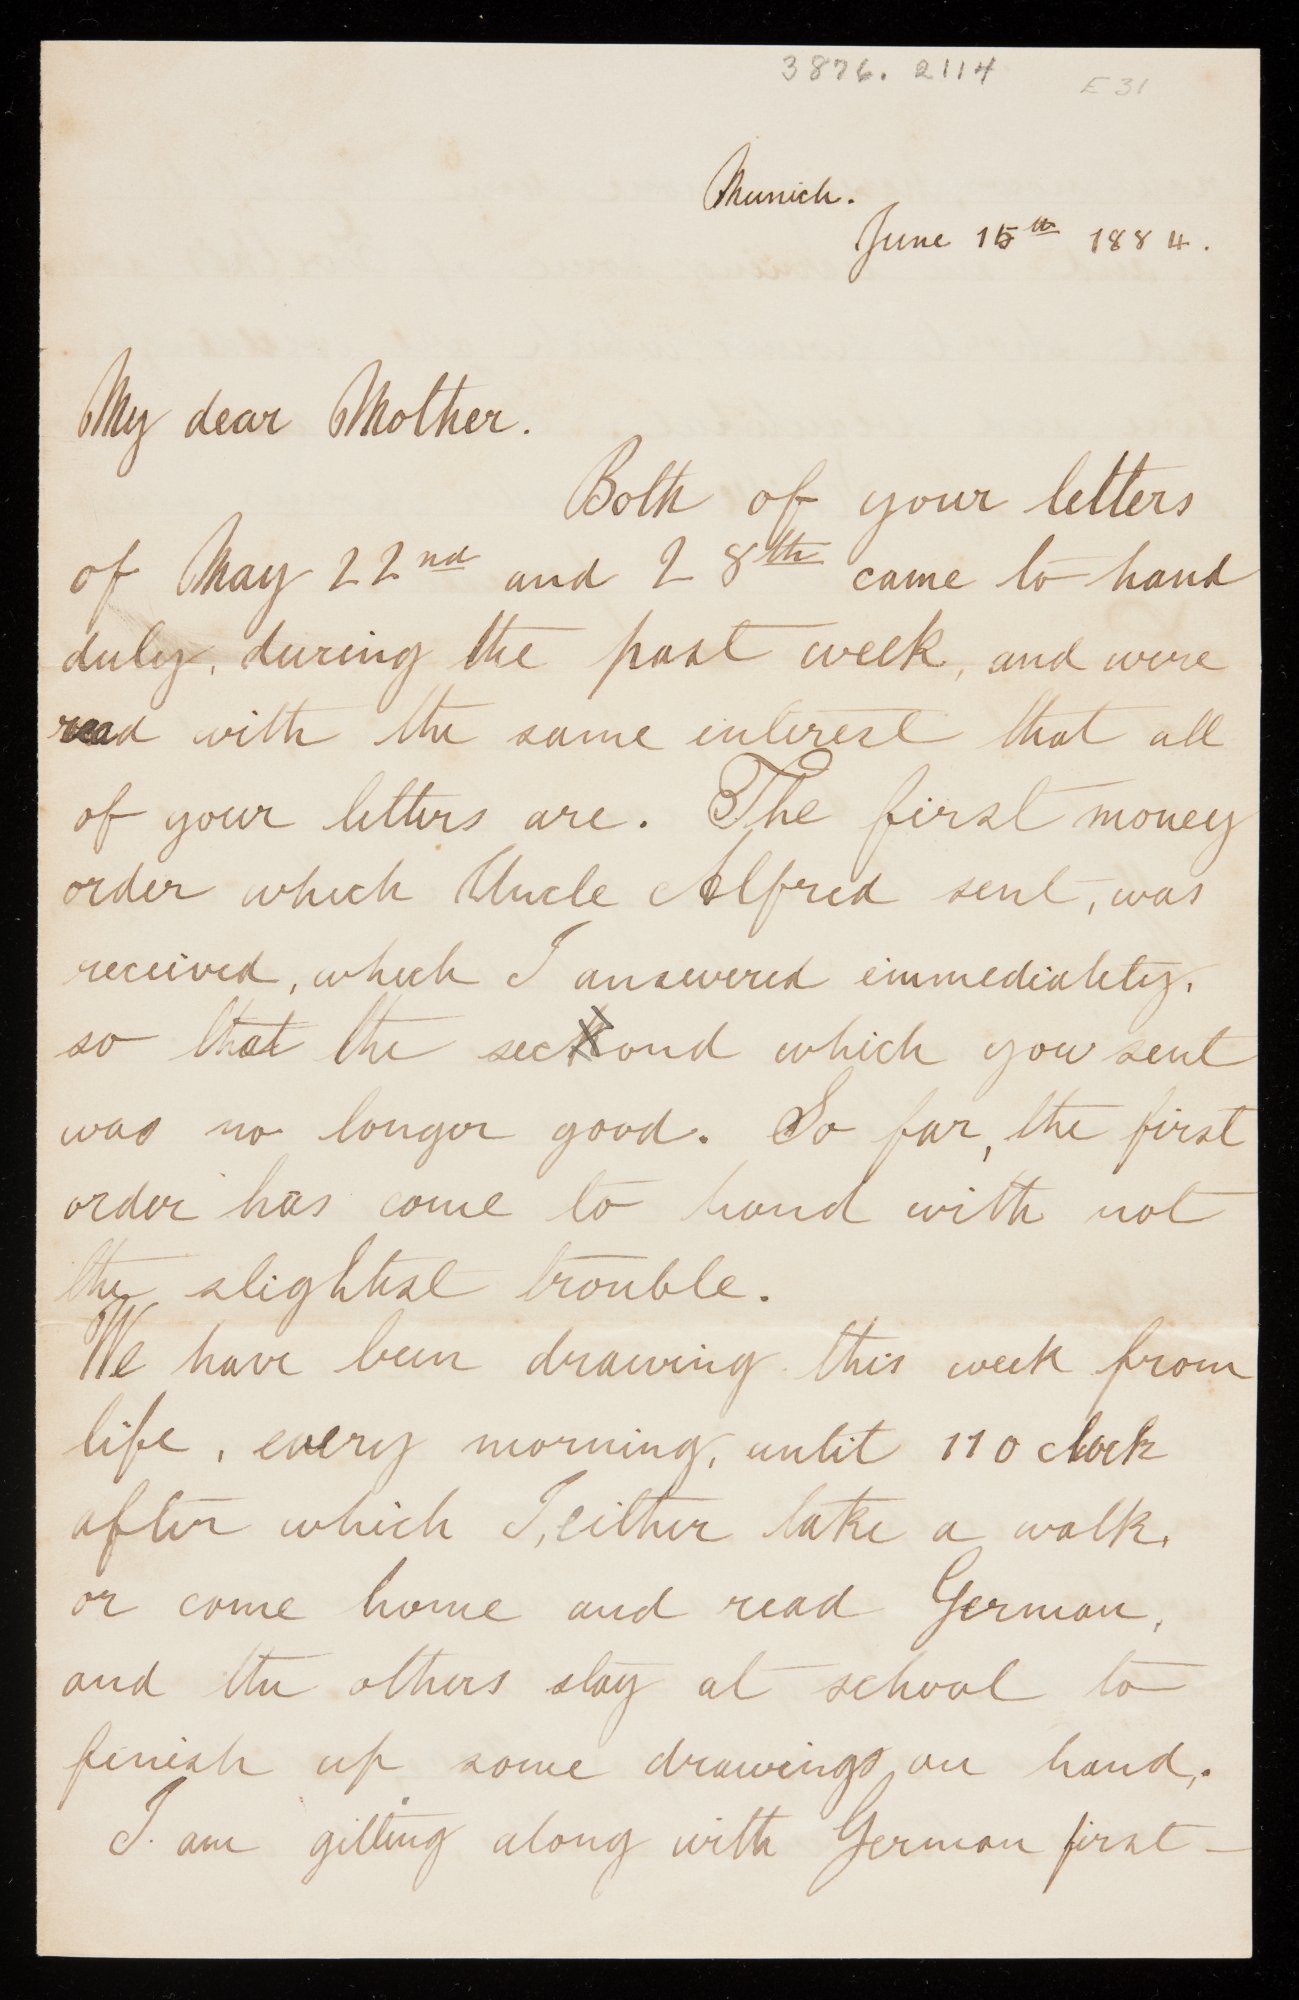 3876.2114
E31
Munich.
June 15th 1884.
My dear Mother.
Both of your letters
of May 22nd and 28th came to hand
duly, during the past week, and were
read with the same interest that all
of your letters are. The first money
order which Uncle Alfred sent, was
received, which I answered immediately,
so that the second which you sent
was no longer good. So far, the first,
order has come to hand with not
the slightest trouble.
We have been drawing this week from
life, every morning, until 11 o clock
after which I, either take a walk,
or come home and read German,
and the others stay at school to
finish up some drawings on hand,.
I am getting along with German first-